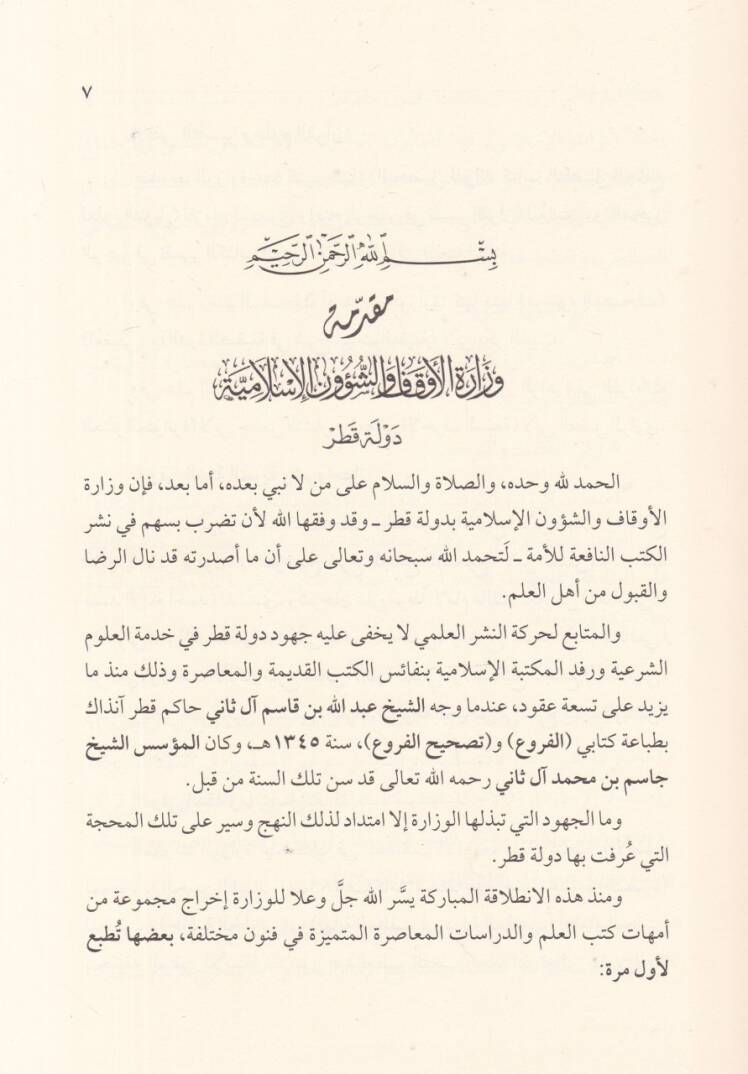 ٧
بسم الله الرحمن الرحيم
مقدمة
وزارة الأوقاف والشؤون الإسلامية
دولة قطر
الحمد لله وحده، والصلاة والسلام على من لا نبي بعده، أما بعد، فإن وزارة
الأوقاف والشؤون الإسلامية بدولة قطر ـ وقد وفقها الله لأن تضرب بسهم في نشر
الكتب النافعة للأمة ـ لَتحمد الله سبحانه وتعالى على أن ما أصدرته قد نال الرضا
والقبول من أهل العلم.
والمتابع لحركة النشر العلمي لا يخفى عليه جهود دولة قطر في خدمة العلوم
الشرعية ورفد المكتبة الإسلامية بنفائس الكتب القديمة والمعاصرة وذلك منذ ما
يزيد على تسعة عقود، عندما وجه الشيخ عبد الله بن قاسم آل ثاني حاكم قطر آنذاك
بطباعة كتابي (الفروع) و(تصحيح الفروع)، سنة ١٣٤٥هـ، وكان المؤسس الشيخ
جاسم بن محمد آل ثاني رحمه الله تعالى قد سن تلك السنة من قبل.
وما الجهود التي تبذلها الوزارة إلا امتداد لذلك النهج وسير على تلك المحجة
التي عُرفت بها دولة قطر.
ومنذ هذه الانطلاقة المباركة يسَّر الله جلَّ وعلا للوزارة إخراج مجموعة من
أمهات كتب العلم والدراسات المعاصرة المتميزة في فنون مختلفة، بعضها تُطبع
لأول مرة: